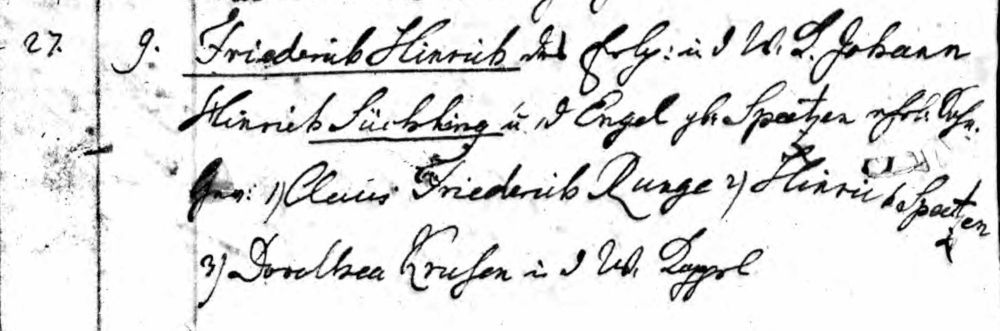 27. 9. Friederich Hinrich des Erbp: in d W. L. Johann
Hinrich Süchting u. d Engel gb. Speetzen ehel. Sohn.
Gev: 1) Claus Friederich Runge 2) Hinrich Speetzen
3) Dorothea Krusen in d W.